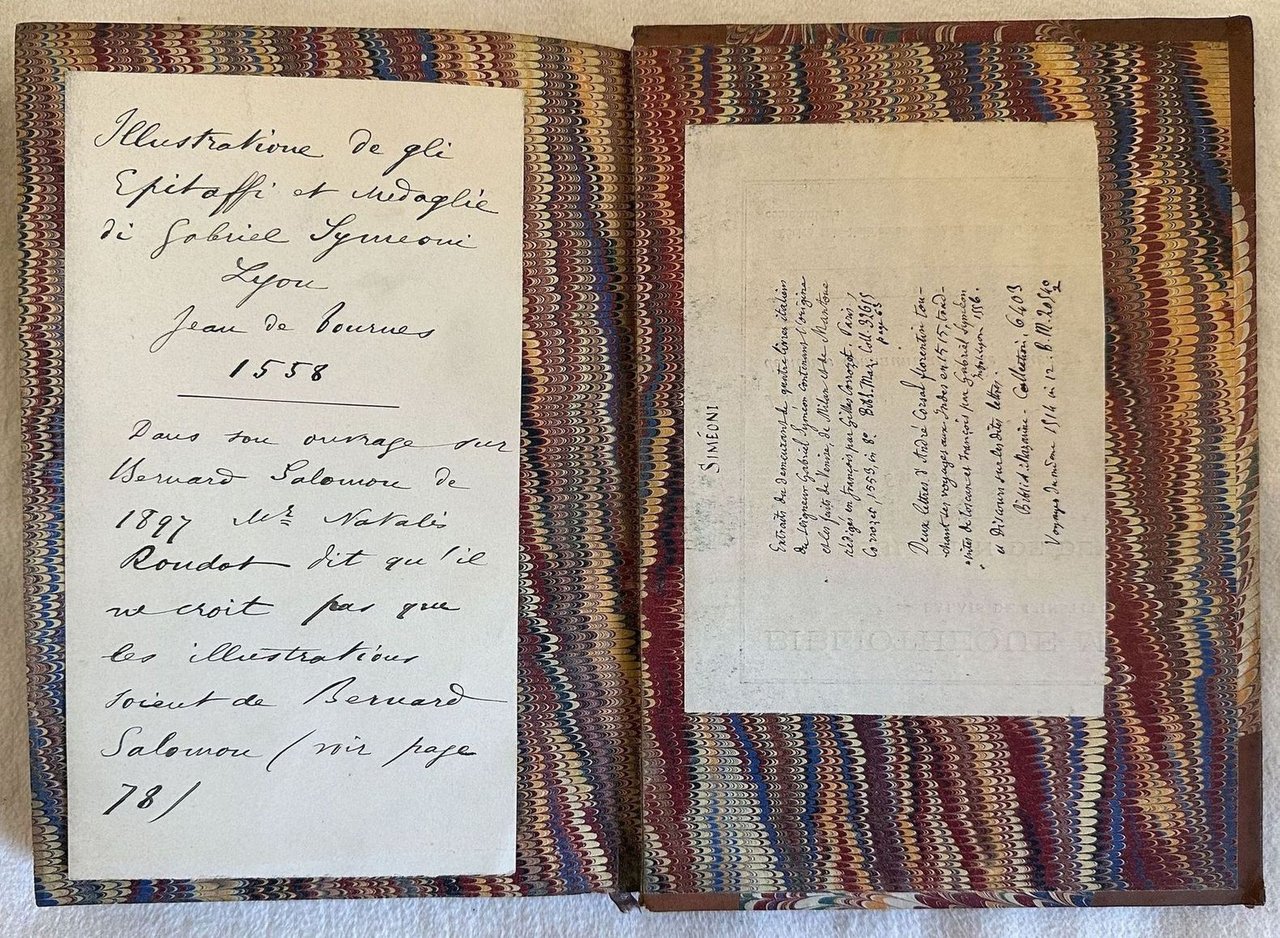 Illustratione de gli
Epitaffi et Medaglie
di Gabriel Symeoni
Lyon
Jean de Tournes
1558
Dans son ouvrage sur
Bernard Salomon de
1897 Mr. Natalis
Rondot dit qu'il
ne croit pas que
les illustrations
soient de Bernard
Salomon (voir page
78)
SIMÉONI
Extraits du demeurant de quatre livres italien
de seigneur Gabriel Symeon contenans l'origine
et les faits de Venise, de Milan et de Mantoue
rédigez en françois par Gilles Corrozet. Paris,
Corrozet, 1553, in 8º. Bibl. Maz. Coll. 32615
page 63
Deux lettres d'André Corsal florentin tou-
chant ses voyages aux Indes en 1515, trad-
uites de toscan et françois par Gabriel Symeon
et Discours sur les dites lettres.
Lyon 1556.
Biblioth. Mazarine - Collection, 6403
Voyage du même 1514 in 12. B. M.